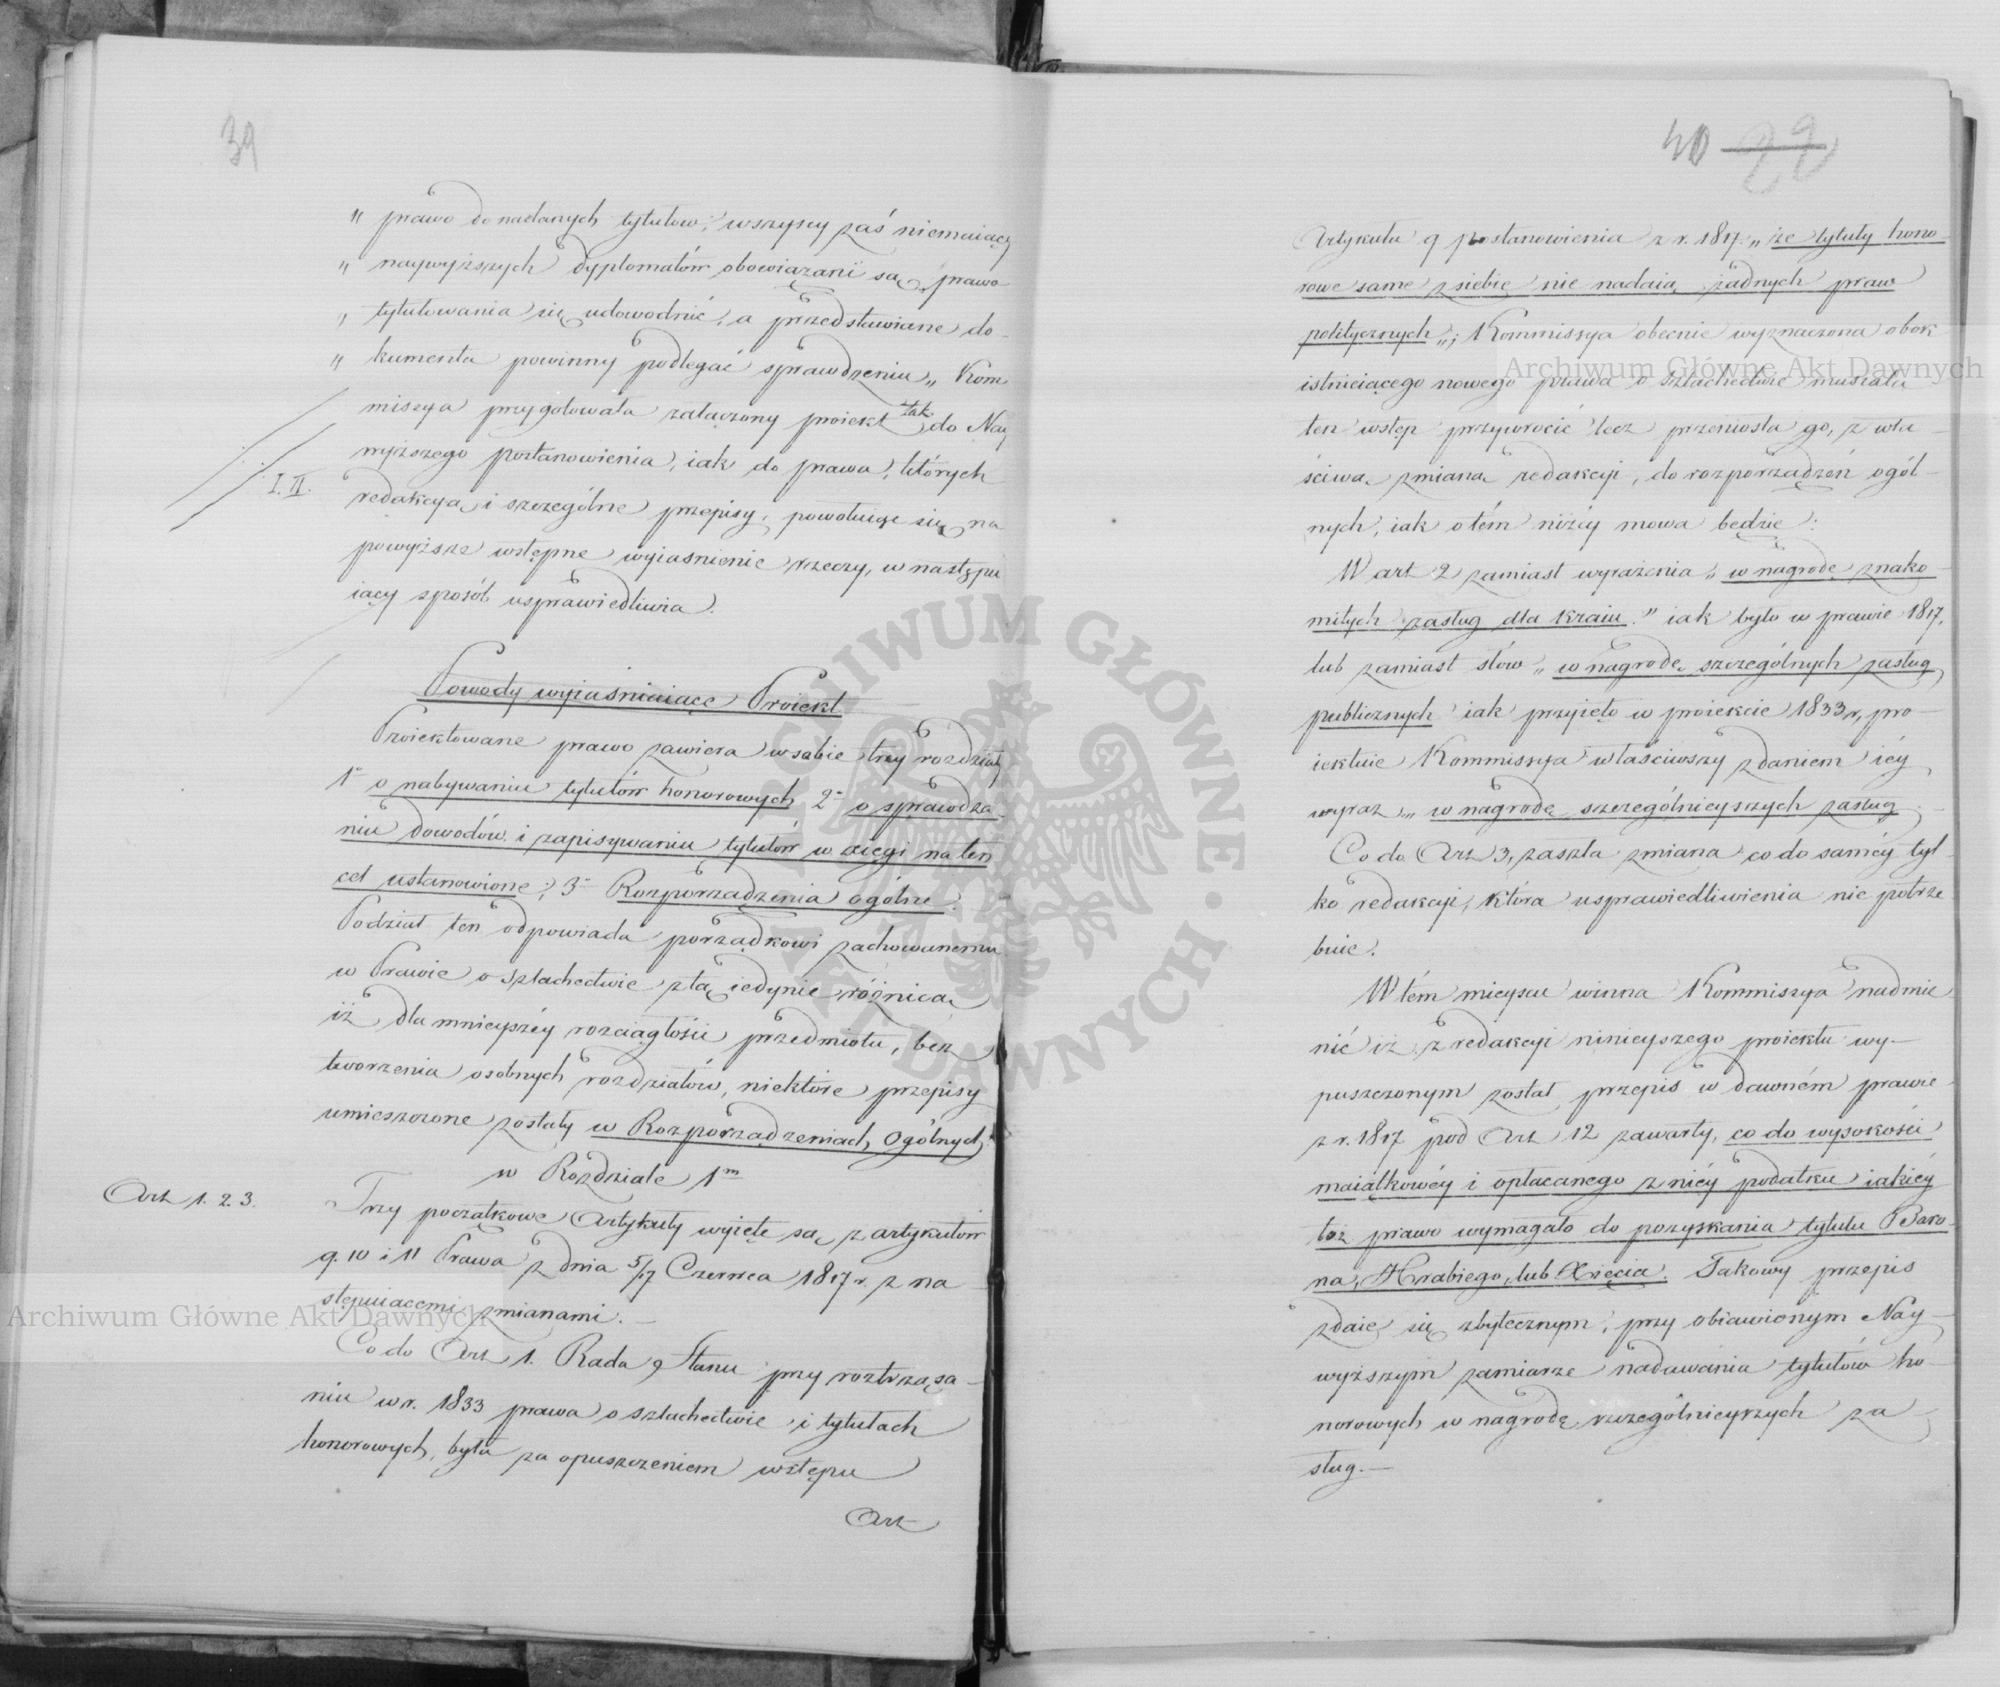 39
„ prawo do nadanych tytułow; wszyscy zaś niemaiący
„ naywyższych dyplomatów obowiązani są prawo
„ tytułowania się udowodnić, a przedstawiane do-
„ kumenta powinny podlegać sprawdzeniu „ Kom
missya przygotowała załączony proiekt tak do Nay
wyższego postanowienia, iak do prawa, których
I. II.
redakcyą i szczególne przepisy, powołuiąc się na
powyższe wstępne wyiasnienie rzeczy, w następu
iący sposób usprawiedliwia.
Powody wyiaśniaiące Proiekt
Proiektowane prawo zawiera w sobie trzy rozdziały
1° o nabywaniu tytułów honorowych 2° o sprawdza-
niu dowodów i zapisywaniu tytułów w xięgi na ten
cel ustanowione, 3° Rozporządzenia ogólne.
Podział ten odpowiada porządkowi zachowanemu
w Prawie o szlachectwie z tą iedynie różnicą
iż dla mnieyszéy rozciągłości przedmiotu, bez
tworzenia osobnych rozdziałów, niektóre przepisy
umieszczone zostały w Rozporządzeniach Ogólnych
w Rozdziale 1m
Art 1. 2. 3.
Trzy początkowe Artykuły wyięte są z artykułów
9. 10 i 11 Prawa z dnia 5/17 Czerwca 1817 r. z na
stępuiącemi zmianami. —
Co do Art 1. Rada Stanu przy roztrząsa-
niu w r. 1833 prawa o szlachectwie i tytułach
honorowych, była za opuszczeniem wstępu
Art
40 29
Artykułu 9 postanowienia z r. 1817. „ że tytuły hono-
rowe same z siebie nie nadaią żadnych praw
politycznych „; Kommissya obecnie wyznaczona obok
istnieiącego nowego prawa o szlachectwie musiała
ten wstęp przywrócić lecz przeniosła go, z wła-
ściwą zmianą redakcyi, do rozporządzeń ogól-
nych, iak o tém niżéy mowa będzie:
W art 2 zamiast wyrażenia „ w nagrodę znako-
mitych zasług dla kraiu." iak było w prawie 1817,
lub zamiast słów „ w nagrodę szczególnych zasług
publicznych iak przyięto w proiekcie 1833 r, pro-
iektuie Kommissya właściwszy zdaniem iéy
wyraz „ w nagrodę szczególnieyszych zasług
Co do Art 3, zaszła zmiana co do saméy tyl-
ko redakcyi, która usprawiedliwienia nie potrze
buie.
W tém mieyscu winna Kommissya nadmie
nić iż z redakcyi ninieyszego proiektu wy-
puszczonym został przepis w dawném prawie
z r. 1817 pod Art 12 zawarty, co do wysokości
maiątkowéy i opłacanego z niéy podatku iakiéy
toż prawo wymagało do pozyskania tytułu Baro-
na, Hrabiego, lub Xięcia. Takowy przepis
zdaie się zbytecznym, przy obiawionym Nay-
wyższym zamiarze nadawania tytułów ho-
norowych w nagrodę szczególnieyszych za-
sług. —
Archiwum Główne Akt Dawnych
Archiwum Główne Akt Dawnych
ARCHIWUM GŁÓWNE · AKT DAWNYCH ·